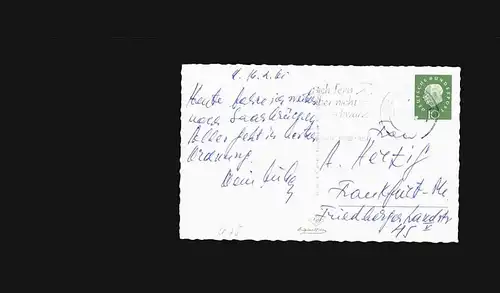 Heute fahre ich weiter
nach Saarbrücken.
Alles geht in bester
Ordnung.
Dein
nach Fern
aber nicht
DEUTSCHE BUNDESPOST
10
Frau
A. Hertzig
Frankfurt-M
Friedberger Landstr
45